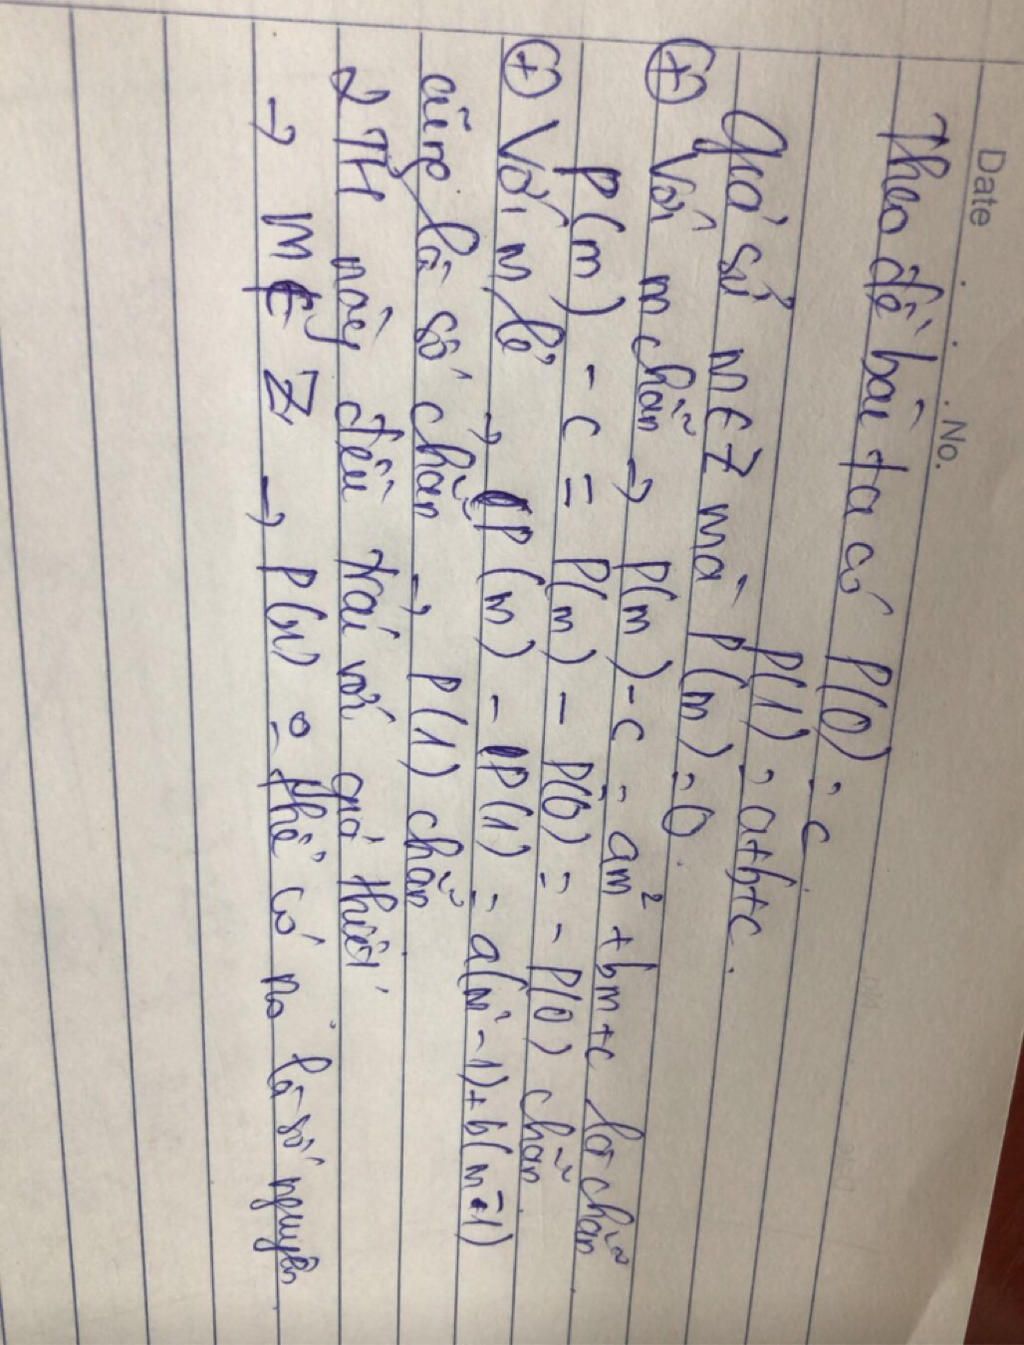 Date . . . No.
Theo đề bài ta có P(0) = c
P(1) = a+b+c.
Giả sử m∈Z mà P(m) = 0.
⊕ Với m chẵn → P(m) - c = am² + bm + c là chẵn
P(m) - c = P(m) - P(0) = - P(0) chẵn
⊕ Với m lẻ → P(m) - P(1) = a(m² - 1) + b(m - 1)
cũng là số chẵn → P(1) chẵn
2 TH này đều trái với giả thiết
→ m ∉ Z → P(x) 0 thể có no là số nguyên